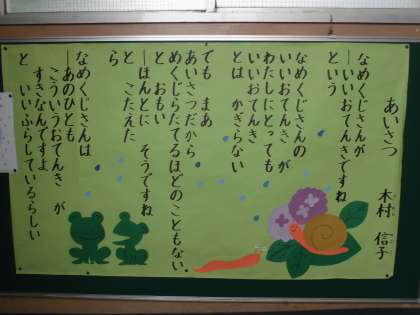 あいさつ
木村 信子
なめくじさんが
―いいおてんきですね
という
なめくじさんの
いいおてんき が
わたしにとっても
いいおてんき
とは かぎらない
でも まあ
あいさつだから
めくじらたてるほどのこともない
と おもい
―ほんとに そうですね
と こたえた
ら
なめくじさんは
―あのひとも
こういうおてんき が
すきなんですよ
と いいふらしているらしい